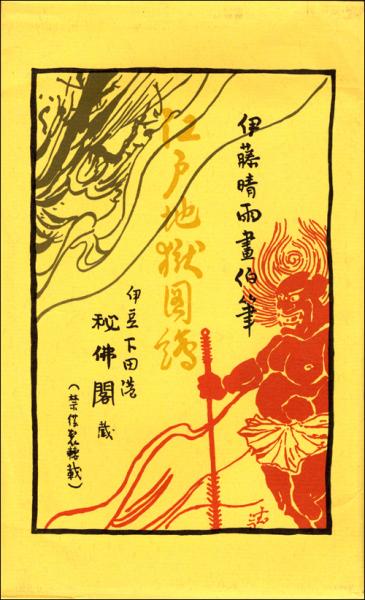 伊藤晴雨畫伯筆
江戸地獄図繪
伊豆下田港
秘佛閣 蔵
(禁複製轉載)